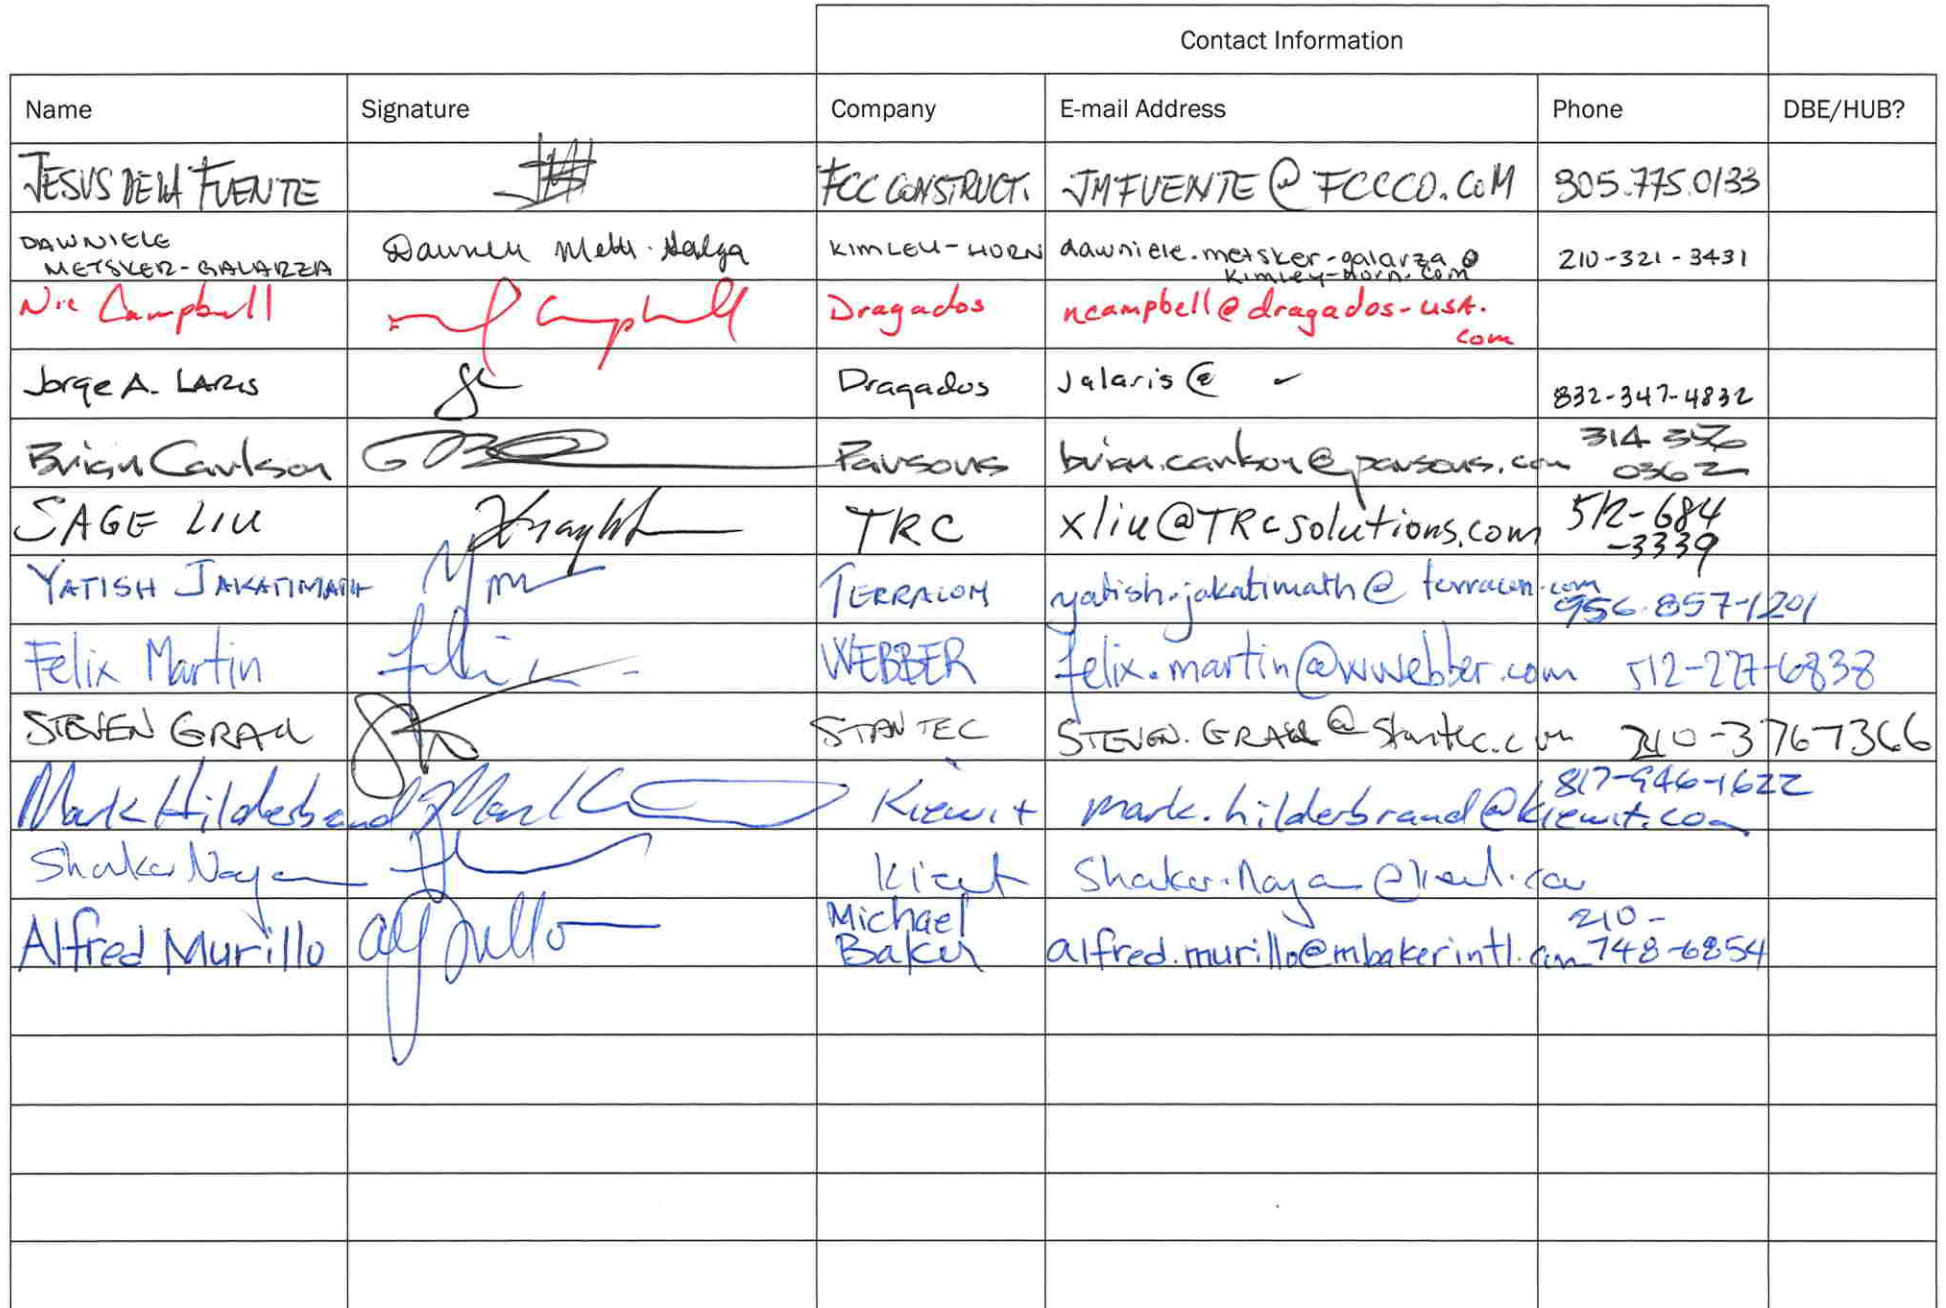 Contact Information
Name Signature Company E-mail Address Phone DBE/HUB?
JESUS DE LA FUENTE FCC CONSTRUCT. JMFUENTE@FCCCO.COM 305.775.0133
DAWNIELE
METSKER-GALARZA KIMLEY-HORN dawniele.metsker-galarza@
kimley-horn.com 210-321-3431
Nic Campbell Campbell Dragados ncampbell@dragados-usa.
com
Jorge A. LARIS Dragados jalaris@ 832-347-4832
Brian Carlson Parsons brian.carlson@parsons.com 314
0362
SAGE LIU TRC xliu@TRCsolutions.com 512-684
-3339
YATISH JAKATIMATH TERRACON yatish.jakatimath@terracon.com
956-857-1201
Felix Martin WEBBER felix.martin@wwebber.com 512-227-6838
STEVEN GRALL STANTEC STEVEN.GRALL@Stantec.com 210-3767366
Mark Hilderbrand Kiewit mark.hilderbrand@kiewit.com 817-946-1622
Shaker Kiewit
Alfred Murillo Michael
Baker alfred.murillo@mbakerintl.com 210-
748-6854